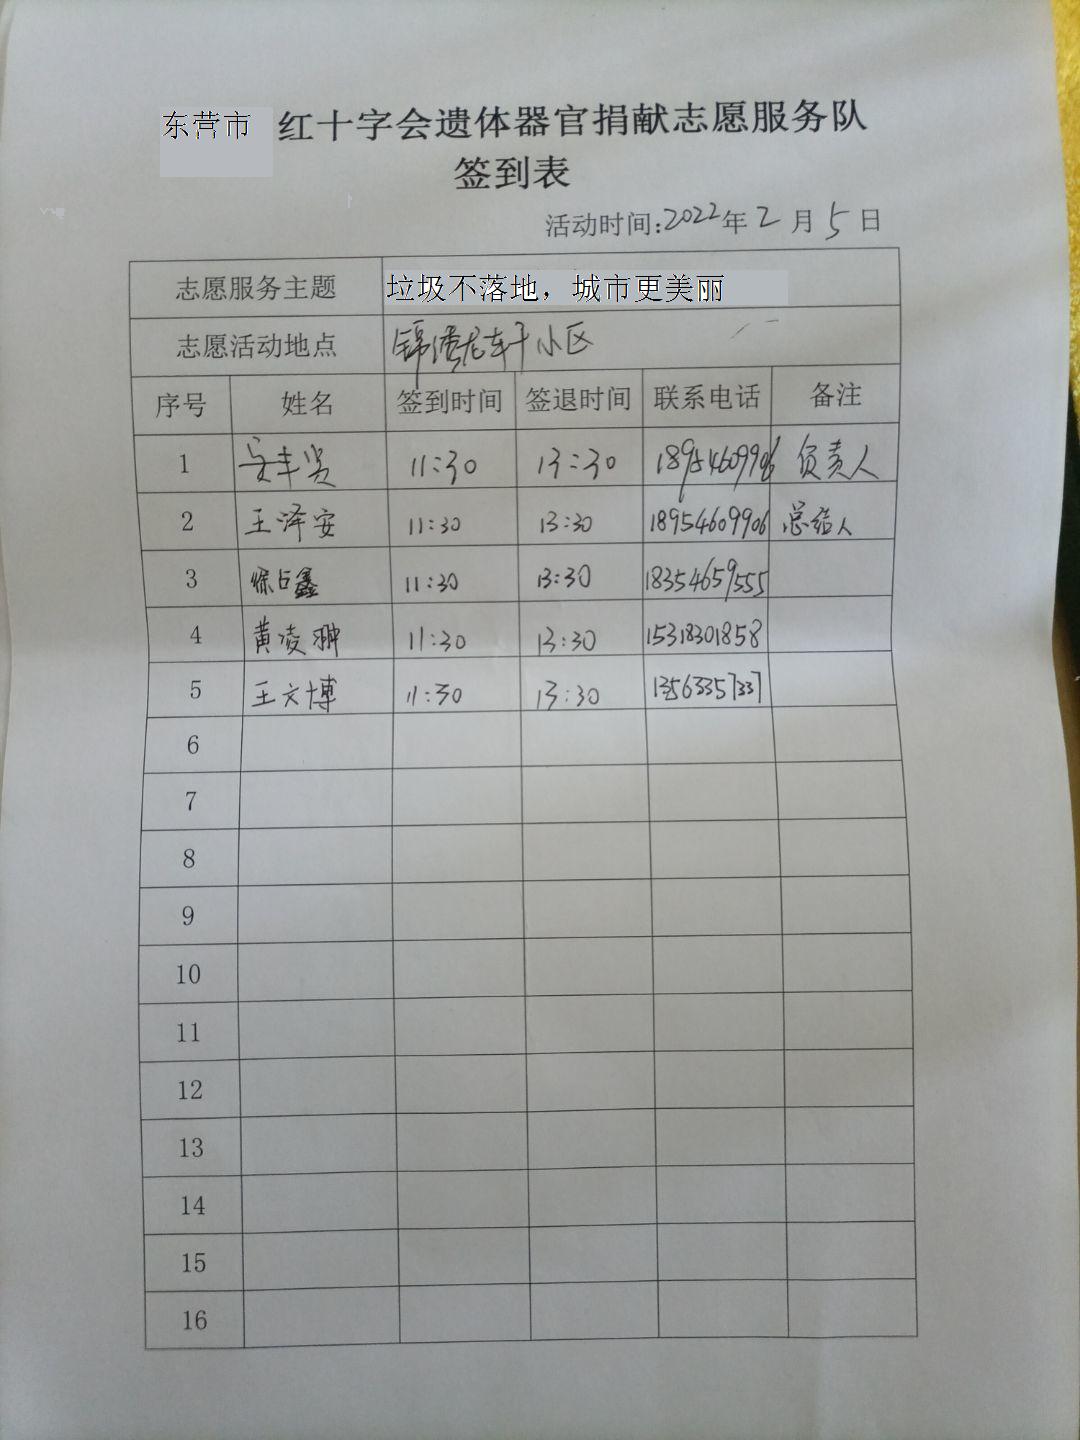 东营市 红十字会遗体器官捐献志愿服务队
签到表
活动时间:2022年2月5日
志愿服务主题 垃圾不落地，城市更美丽
志愿活动地点 小区
序号 姓名 签到时间 签退时间 联系电话 备注
1 11:30 13:30 18954609906 负责人
2 王泽安 11:30 13:30 18954609906 总结人
3 徐占鑫 11:30 13:30 18354659555
4 黄凌翀 11:30 13:30 15318301858
5 王文博 11:30 13:30 13563357337
6
7
8
9
10
11
12
13
14
15
16